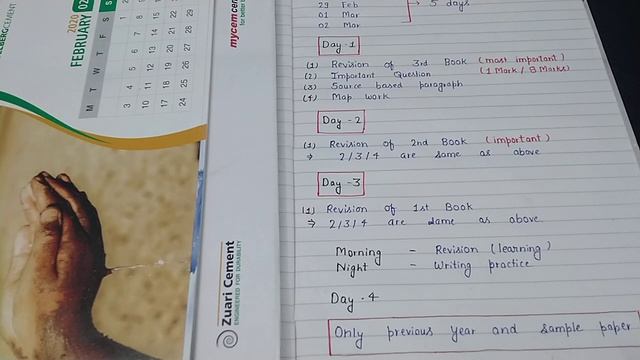 2020
FEBRUARY 02
M T W T F S S
1 2
3 4 5 6 7 8
10 11 12 13 14 15
17 18 19 20 21 22
24 25 26 27 28 29
mycemcem
for better
Zuari Cement
ENGINEERED FOR DURABILITY
29 Feb
01 Mar
02 Mar
5 days
Day-1
(1) Revision of 3rd Book (most important)
(2) Important Question (1 Mark / 8 Marks)
(3) Source based paragraph
(4) Map work
Day-2
(1) Revision of 2nd Book (important)
⇒ 2/3/4 are same as above
Day-3
(1) Revision of 1st Book
⇒ 2/3/4 are same as above.
Morning - Revision (learning)
Night - Writing practice
Day-4
Only previous year and sample paper